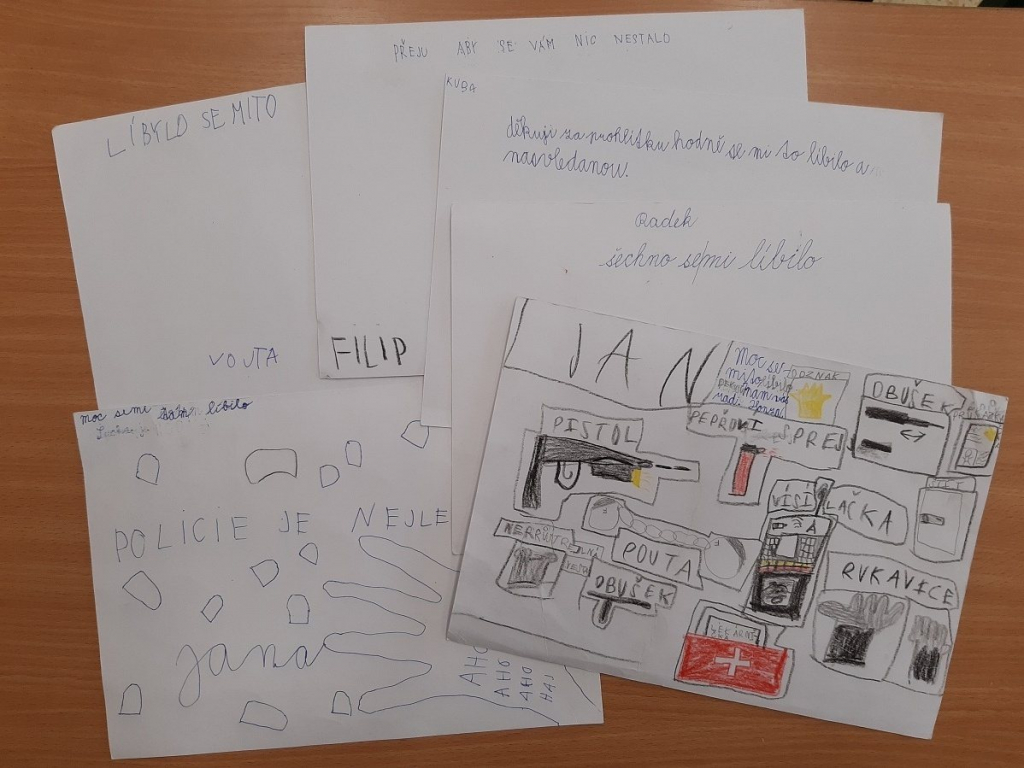 PŘEJU ABY SE VÁM NIC NESTALO
FILIP
LÍBYLO SE MITO
VOJTA
KUBA
děkuji za prohlítku hodně se mi to líbilo a
nasvledanou.
Radek
šechno se mi líbilo
moc semi líbilo
POLICIE JE NEJLE
jana
AHO
AHO
AHO
HAJ
JAN
moc se
mi to líbilo
ODZNAK
OBUŠEK
PISTOL
PEPŘOVÍ SPREJ
VISÍLAČKA
POUTA
OBUŠEK
RUKAVICE